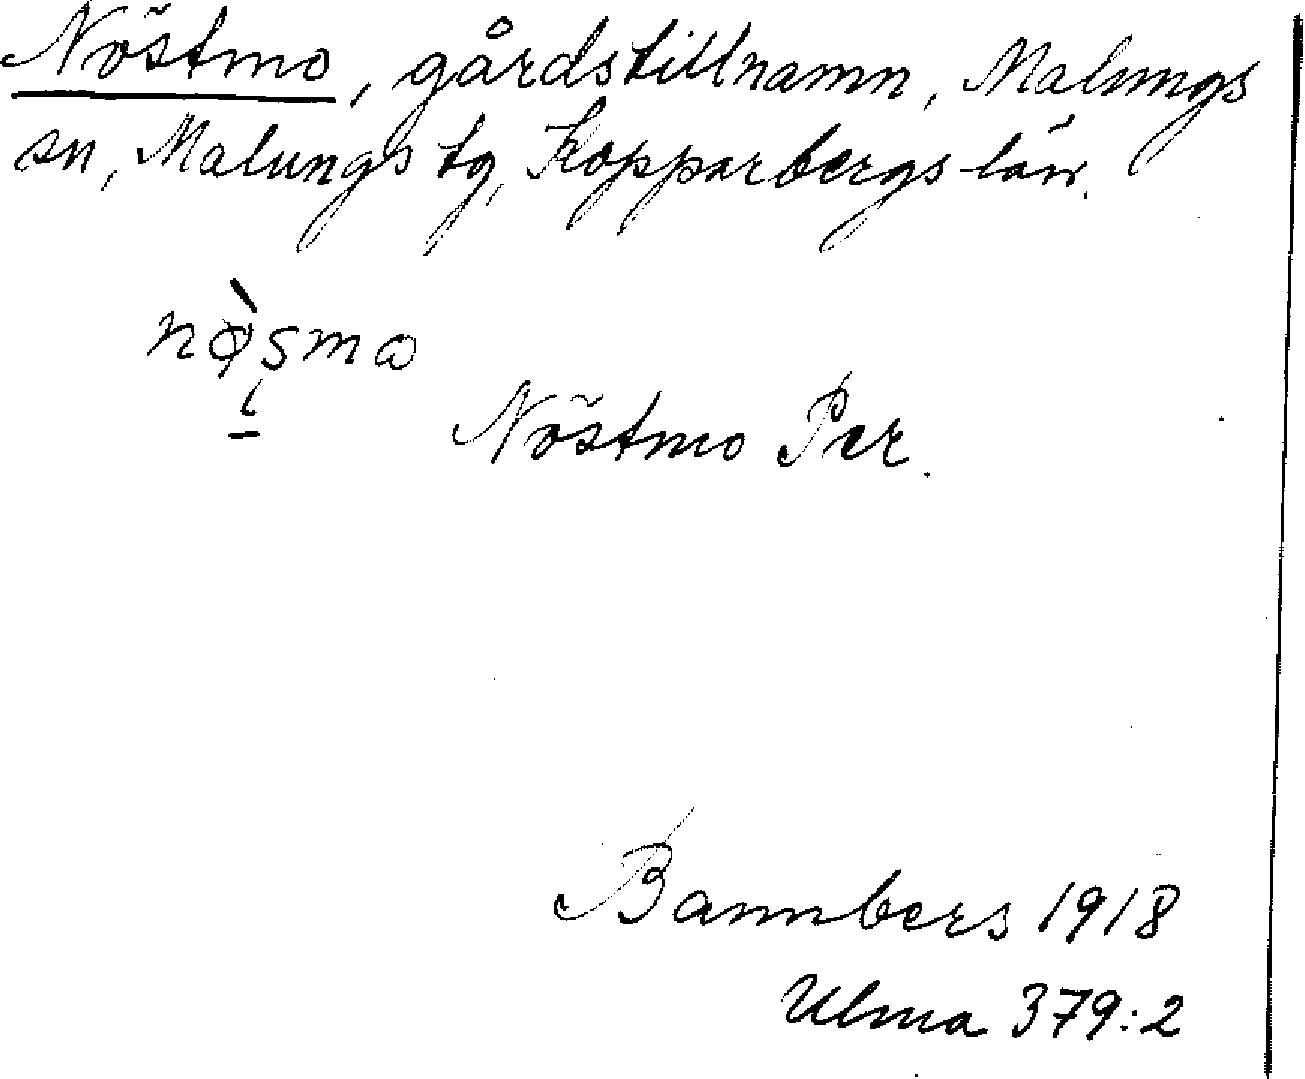 Nöstmo, gårdstillnamn, Malungs
sn, Malungs tg, Kopparbergs län.
nø̀smɷ
Nöstmo Per.
Bannbers 1918
Ulma 379:2